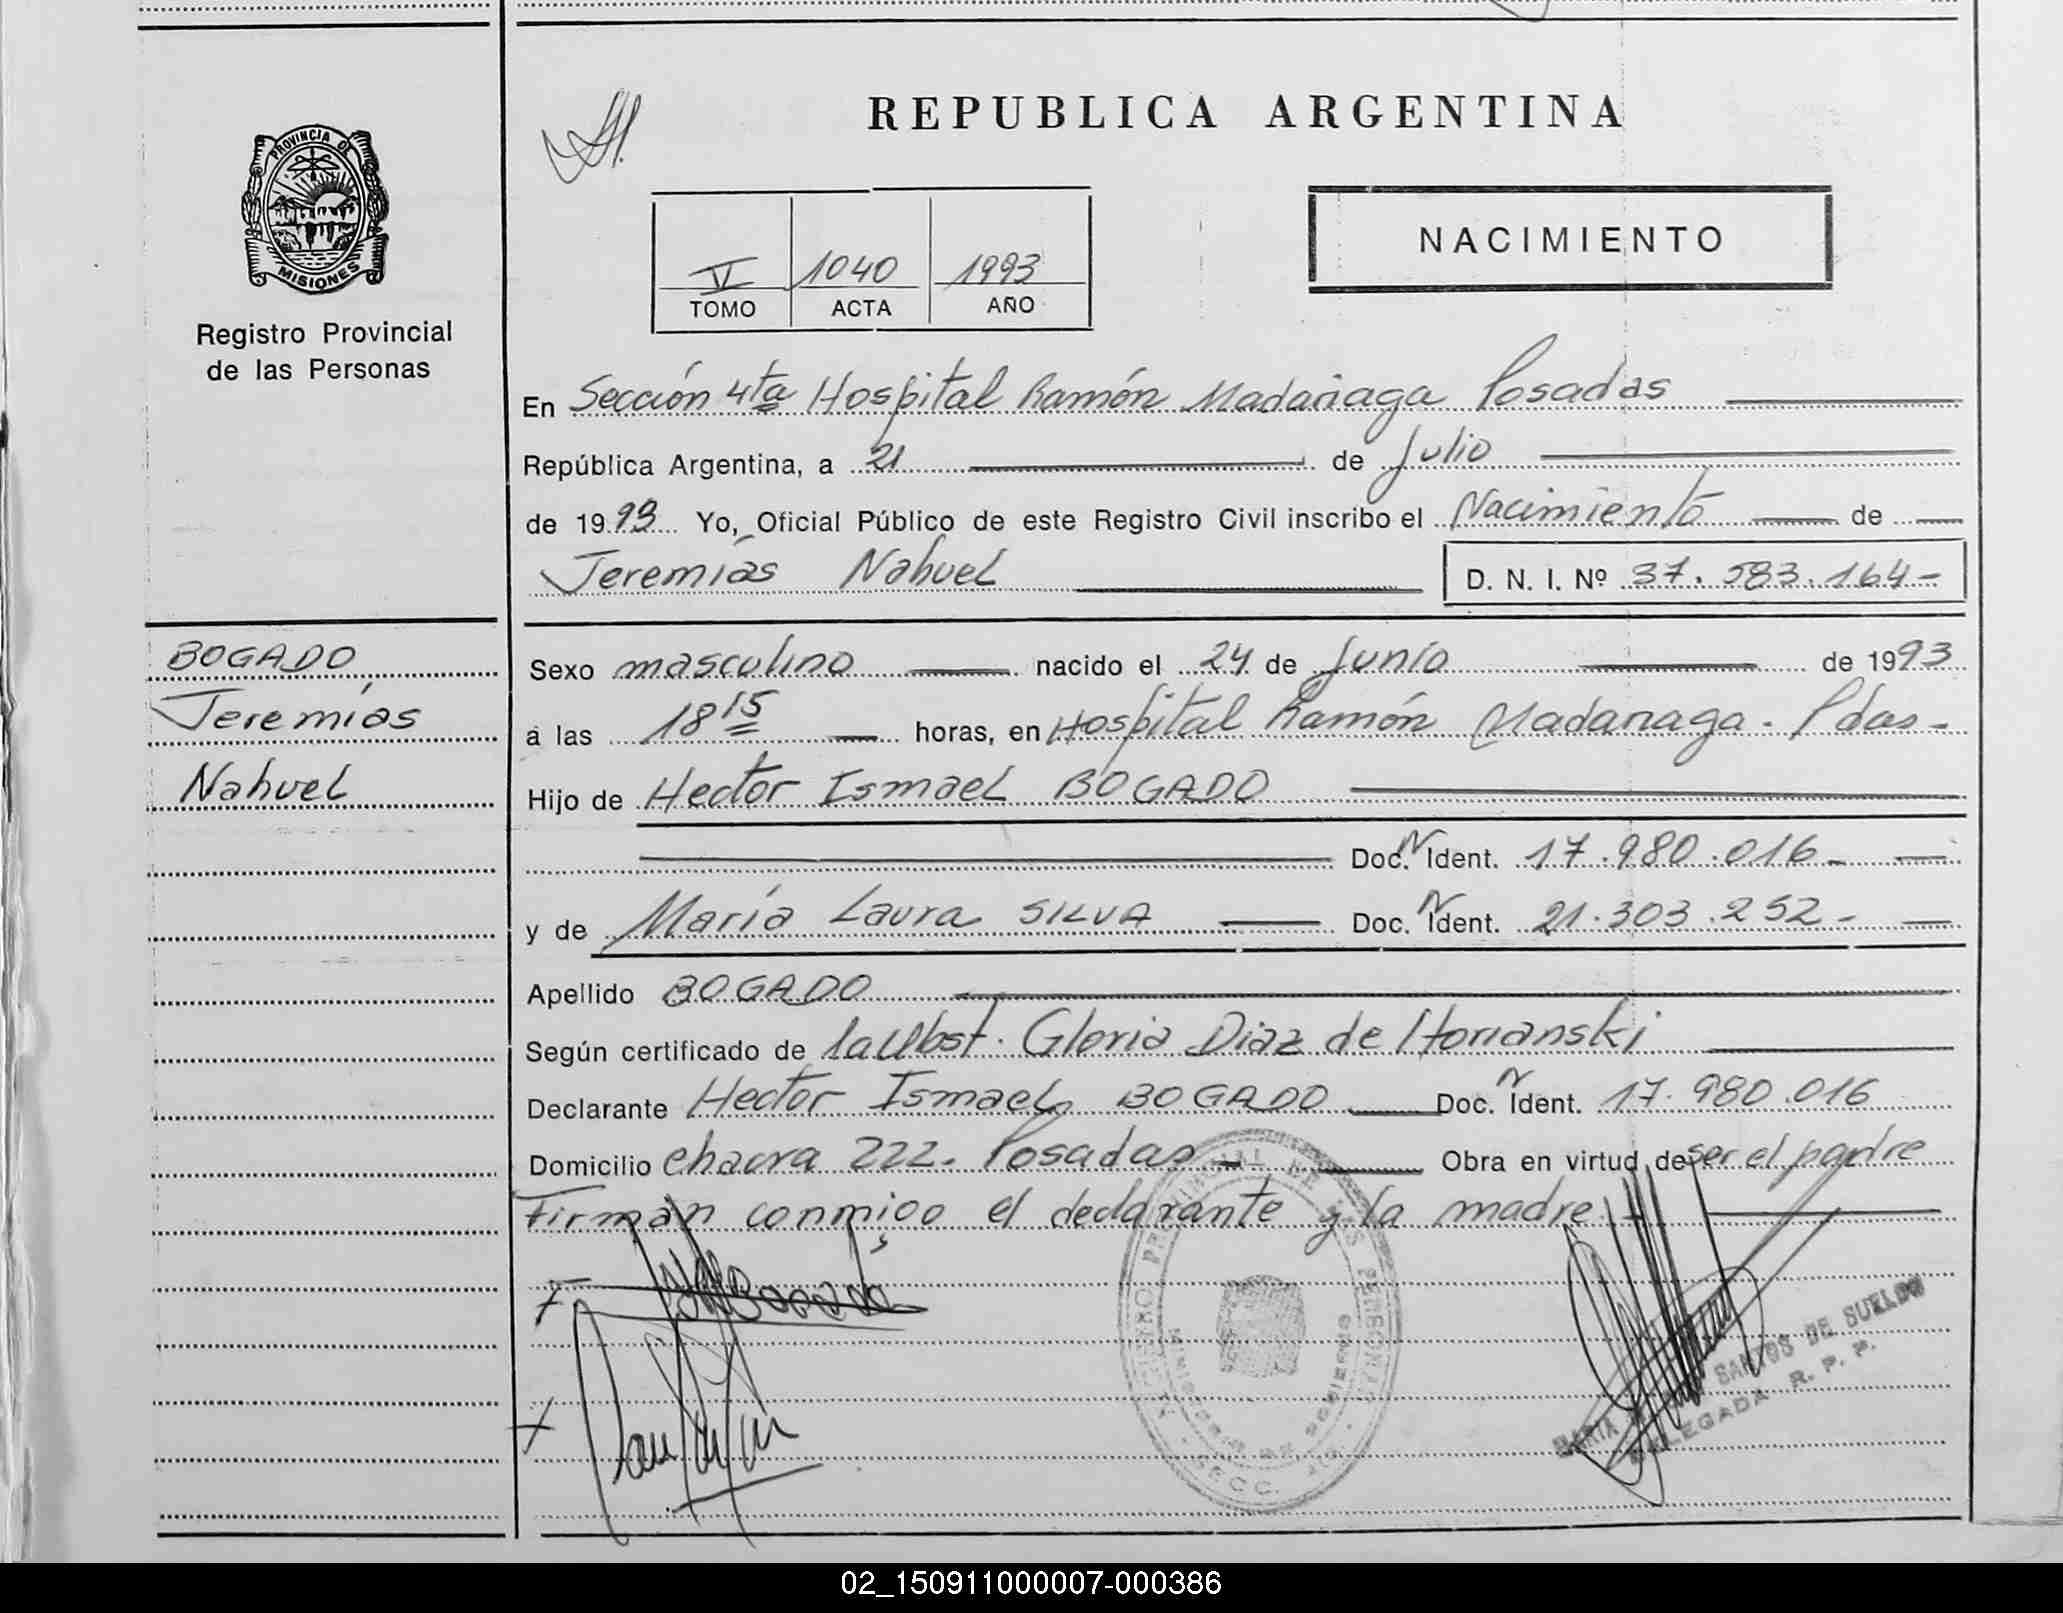 PROVINCIA DE
MISIONES
Registro Provincial
de las Personas
BOGADO
Jeremías
Nahuel
REPUBLICA ARGENTINA
V 1040 1993
TOMO ACTA AÑO
NACIMIENTO
En Sección 4ta Hospital Ramón Madariaga Posadas
República Argentina, a 21 de Julio
de 1993 Yo, Oficial Público de este Registro Civil inscribo el Nacimiento de
Jeremías Nahuel D. N. I. Nº 37.583.164-
Sexo masculino nacido el 24 de Junio de 1993
a las 18 15 horas, en Hospital Ramón Madariaga - Pdas-
Hijo de Hector Ismael BOGADO
Doc. N Ident. 17.980.016-
y de María Laura SILVA Doc. N Ident. 21.303.252-
Apellido BOGADO
Según certificado de la Obst. Gloria Diaz de Horianski
Declarante Hector Ismael BOGADO Doc. N Ident. 17.980.016
Domicilio chacra 222. Posadas- Obra en virtud de ser el padre
Firman conmigo el declarante y la madre
REGISTRO PROVINCIAL DE LAS PERSONAS
MINISTERIO DE GOBIERNO
SECC. 4ta
MARIA SANTOS DE SUELDO
DELEGADA R. P. P.
02_150911000007-000386